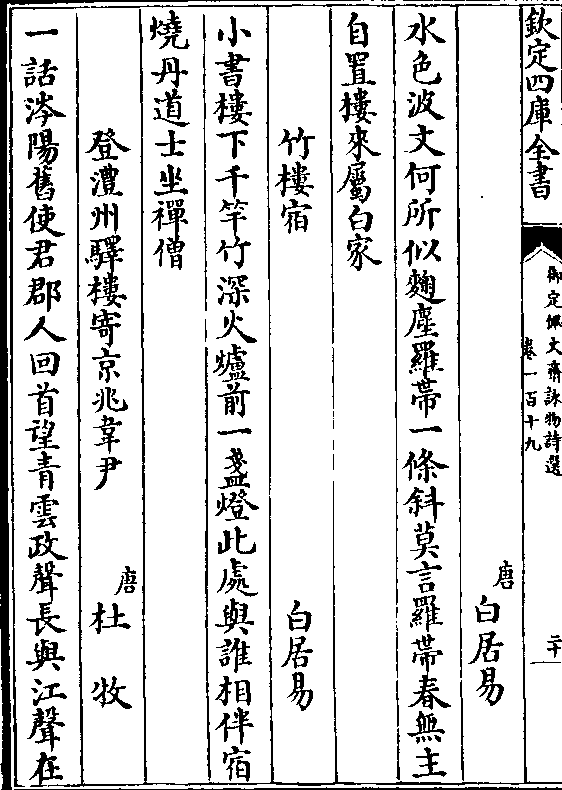 欽定四庫全書
御定佩文齋詠物詩選
卷一百十九
二十
唐白居易
水色波文何所似麹塵羅帶一條斜莫言羅帶春無主
自置樓來屬白家
竹樓宿
白居易
小書樓下千竿竹深火爐前一盞燈此處與誰相伴宿
燒丹道士坐禪僧
登澧州驛樓寄京兆韋尹
唐杜牧
一話涔陽舊使君郡人回首望青雲政聲長與江聲在